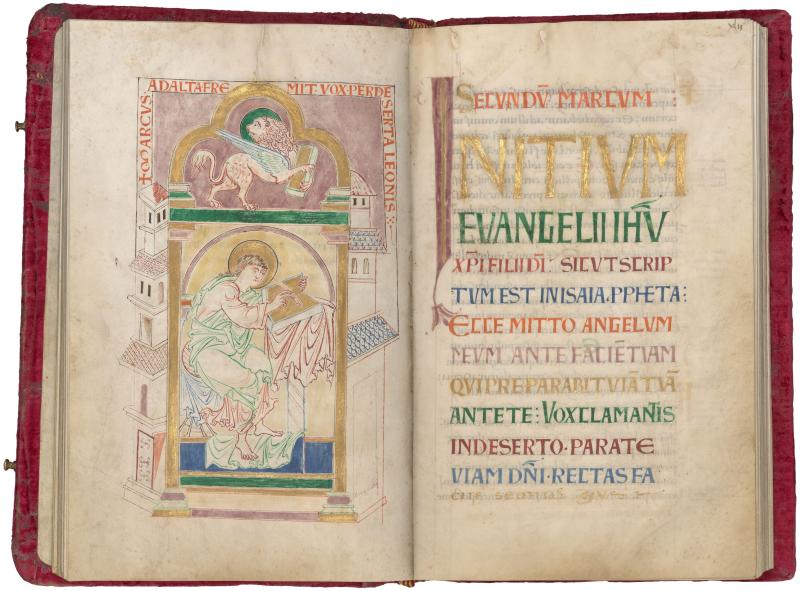 ✝MARCVS
ADALTAFRE MIT·VOX·PERDE
SERTA LEONIS
SECVNDV̄ MARCVM:
INITIVM
EVANGELII IHV̄
XP̄I FILII DĪ: SICVT SCRIP
TVM EST IN ISAIA·PPHETA:
ECCE MITTO ANGELVM
MEVM ANTE FACIĒ TVAM
QVI PREPARABIT VIĀ TVĀ
ANTE TE: VOX CLAMANTIS
IN DESERTO·PARATE
VIAM DN̄I·RECTAS FA
CITE SEMITAS